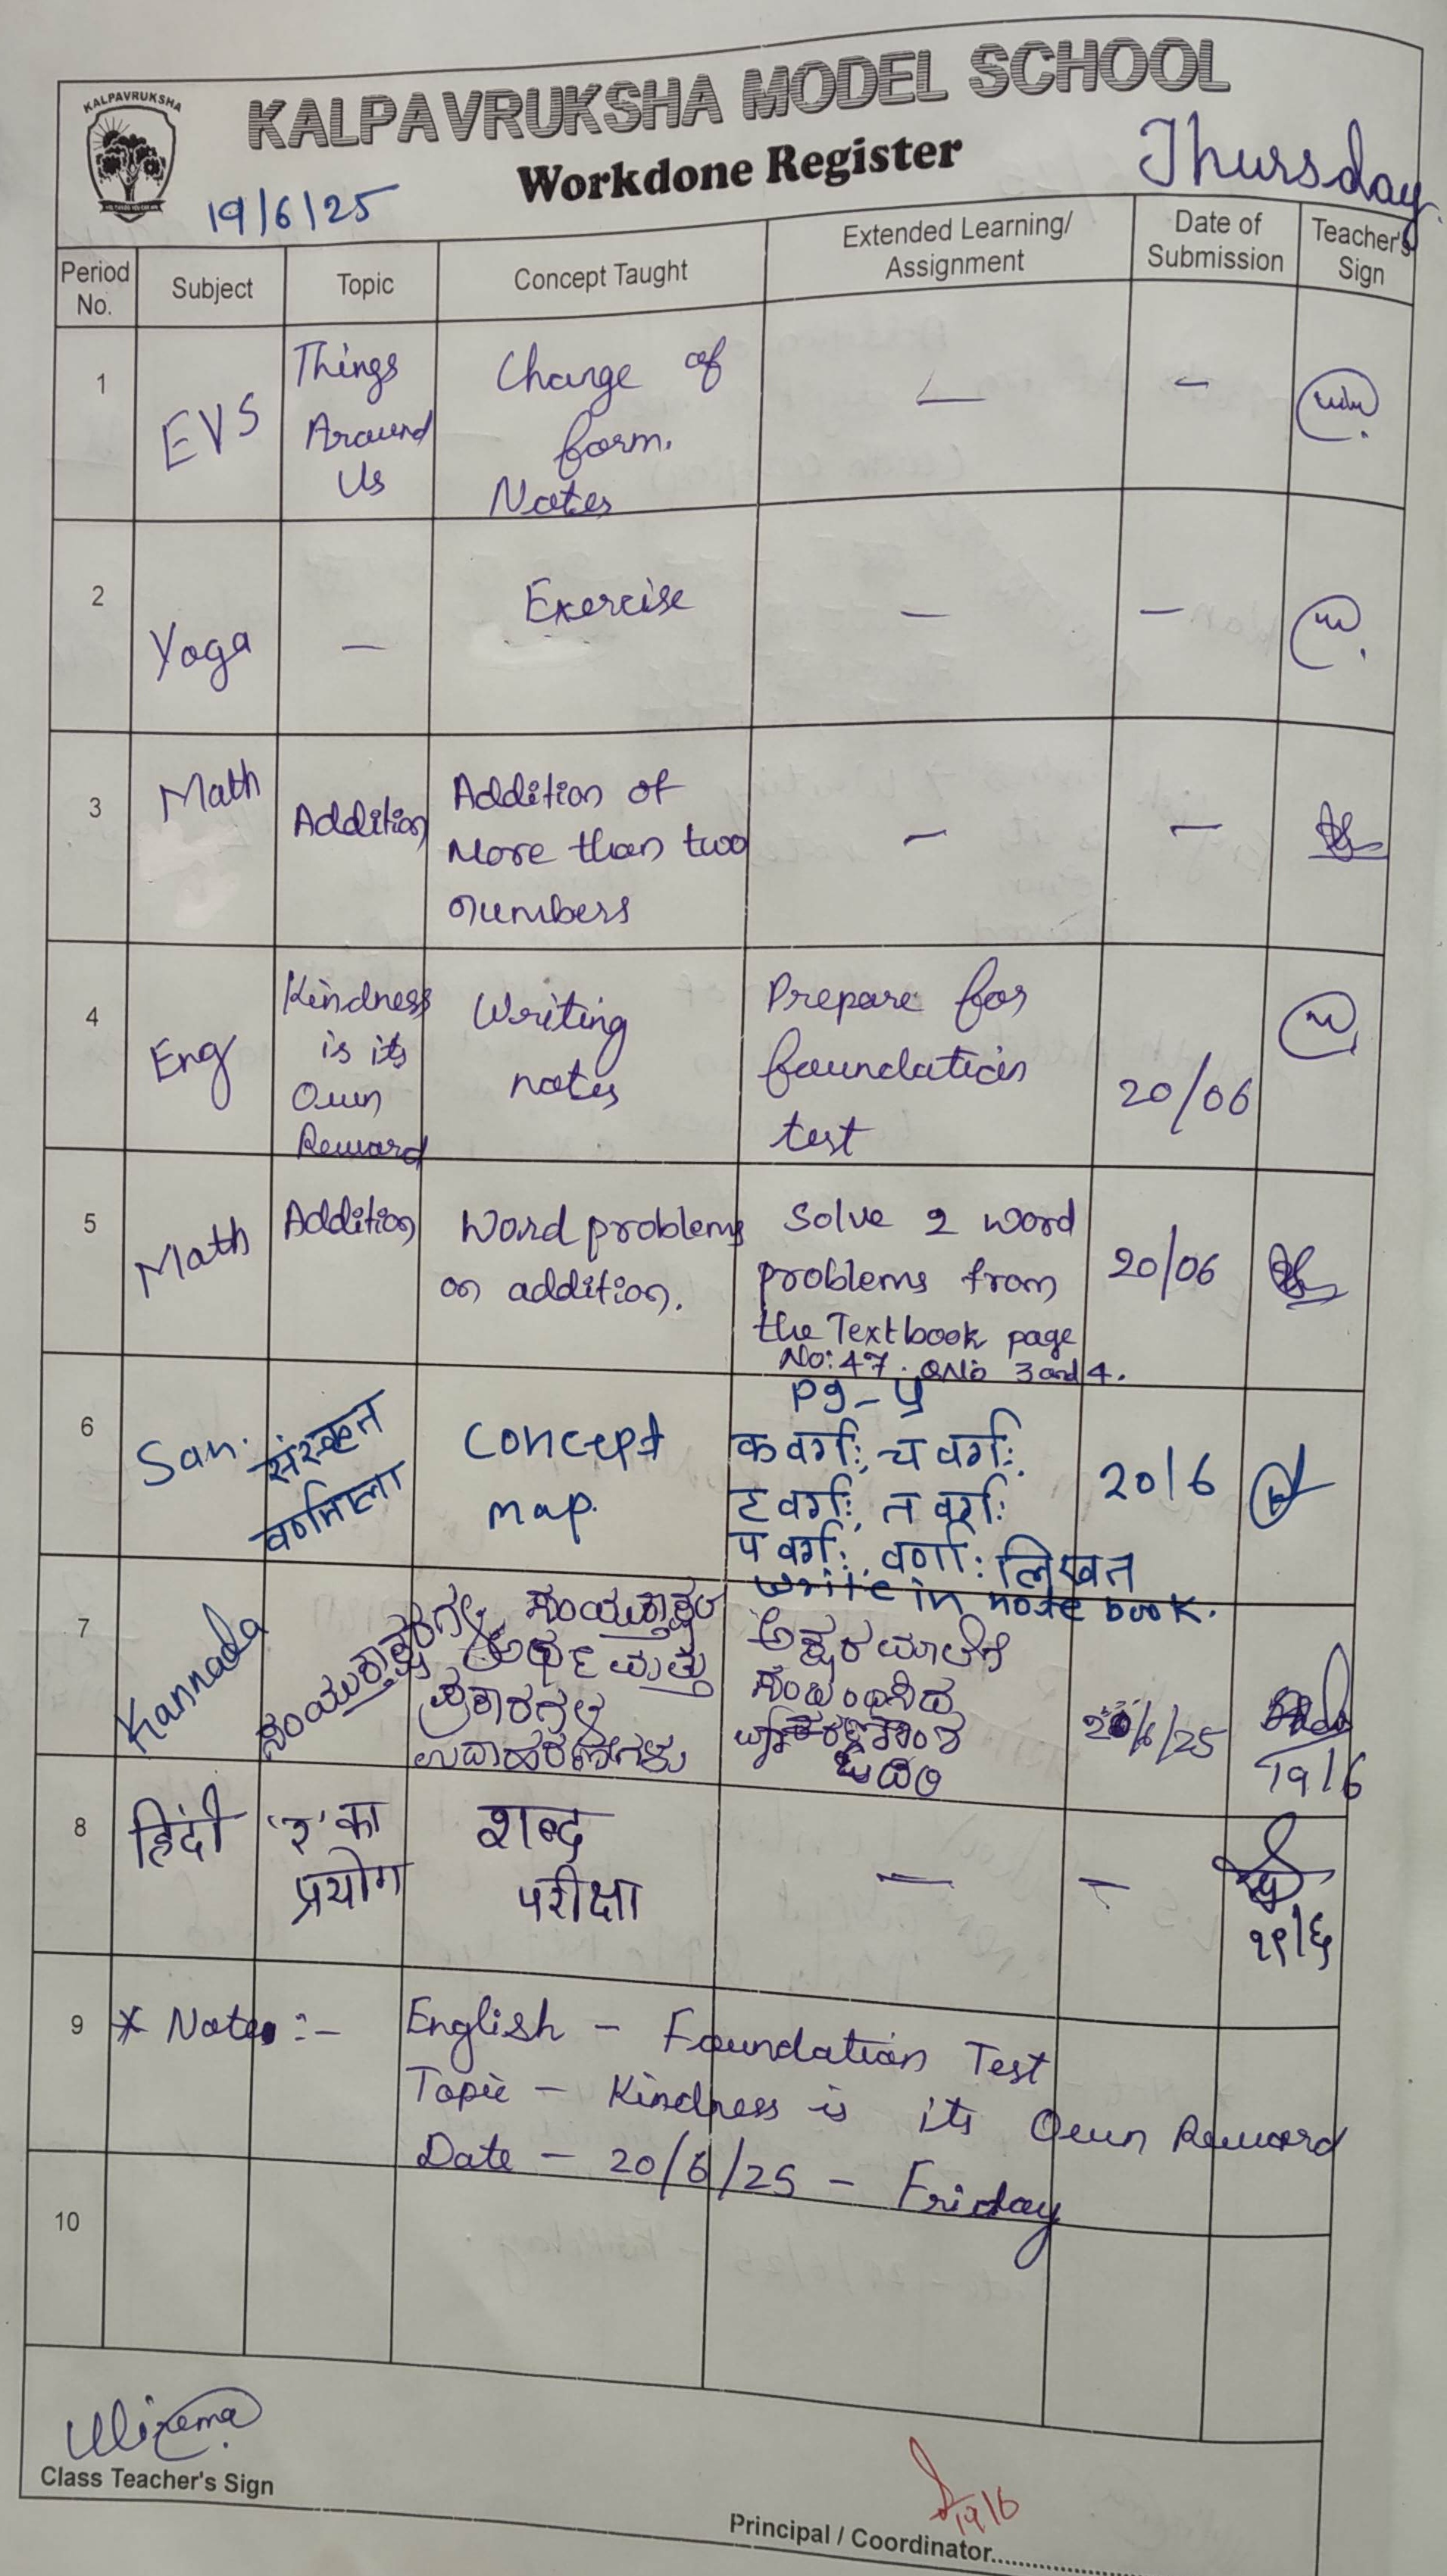 KALPAVRUKSHA
KALPAVRUKSHA MODEL SCHOOL
Workdone Register
Thursday
19/6/25
Period No.
Subject
Topic
Concept Taught
Extended Learning/
Assignment
Date of
Submission
Teacher's
Sign
1
EVS
Things
Around
Us
Change of
form.
Notes
—
—
2
Yoga
—
Exercise
—
—
3
Math
Addition
Addition of
More than two
numbers
—
—
4
Eng
Kindness
is its
Own
Reward
Writing
notes
Prepare for
foundation
test
20/06
5
Math
Addition
Word problems
on addition.
Solve 2 word
problems from
the Textbook page
No: 47. QNo 3 and 4.
20/06
6
San.
संस्कृत
वर्णमाला
Concept
map.
pg - 5
क वर्गः, च वर्गः,
ट वर्गः, त वर्गः
प वर्गः, वर्णाः लिखत
write in note book.
20/6
7
Kannada
ಸಂಯುಕ್ತಾಕ್ಷರಗಳು
ಸಂಯುಕ್ತಾಕ್ಷರ
ಅರ್ಥ ಮತ್ತು
ಪ್ರಕಾರಗಳ
ಉದಾಹರಣೆಗಳು
ಅಕ್ಷರಮಾಲೆಗೆ
ಸಂಬಂಧಿಸಿದ
ಓದಿರಿ
/6/25
19/6
8
हिंदी
'र' का
प्रयोग
शब्द
परीक्षा
—
—
१९/६
9
* Note :-
English - Foundation Test
Topic - Kindness is its Own Reward
Date - 20/6/25 - Friday
10
Class Teacher's Sign
19/6
Principal / Coordinator